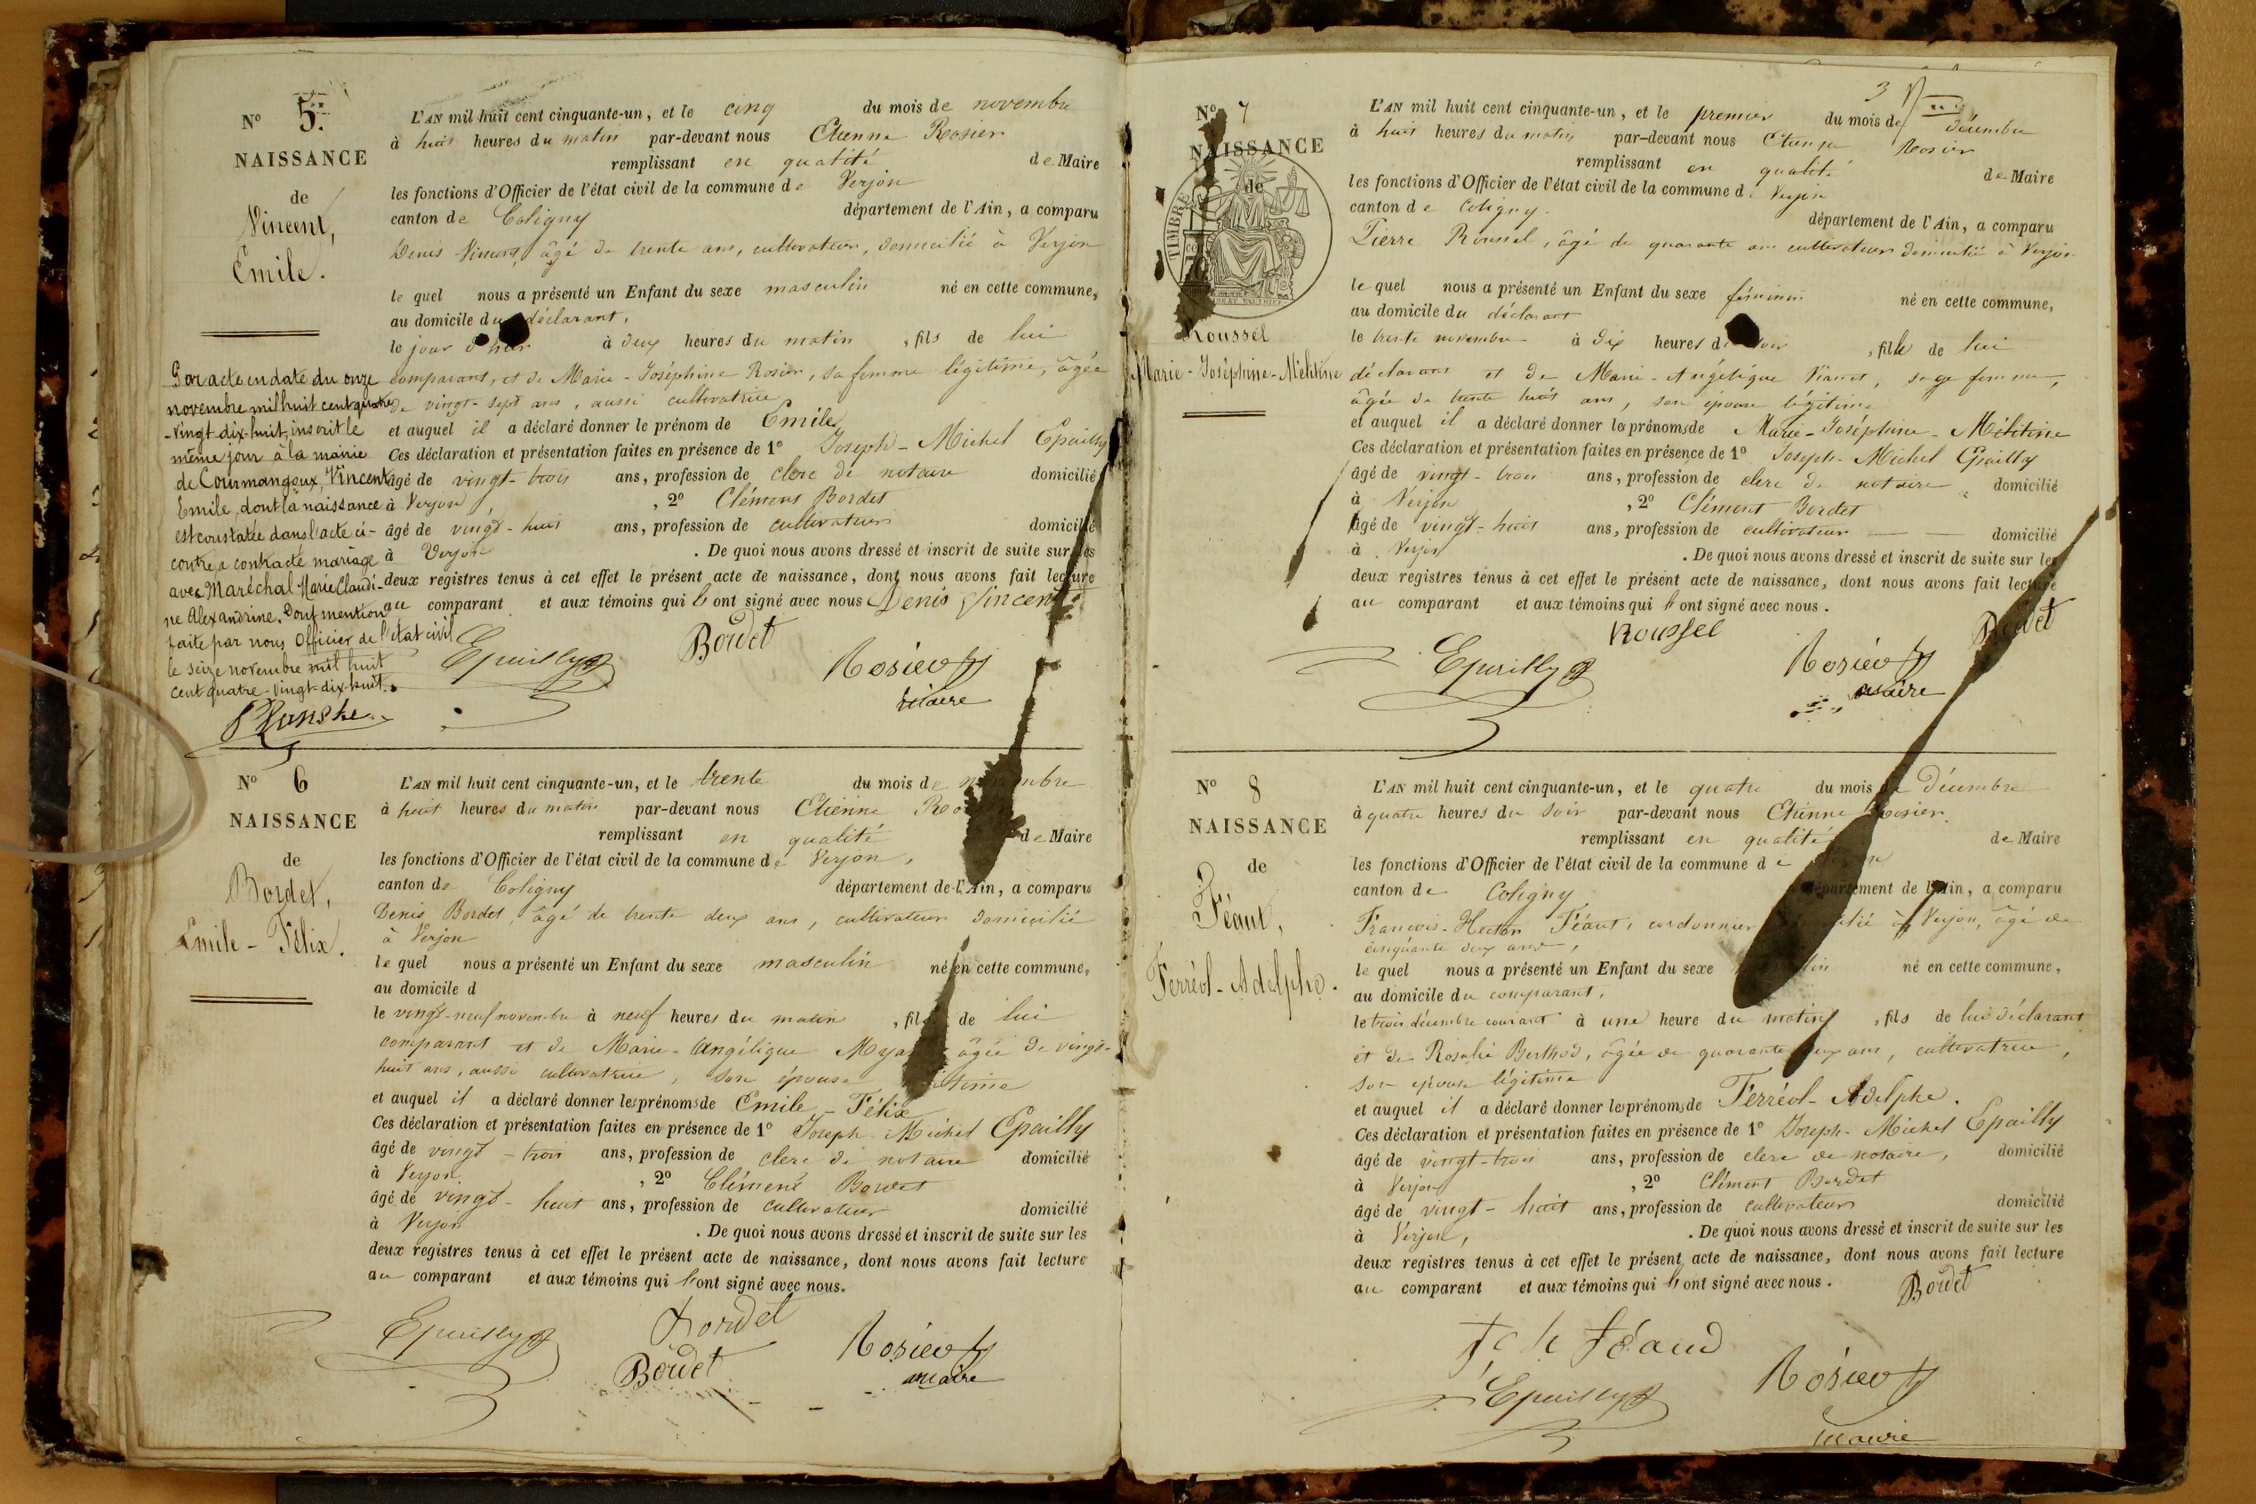 N° 5.
NAISSANCE
de
Vincent,
Emile.
L'AN mil huit cent cinquante-un, et le cinq du mois de novembre
à huit heures du matin par-devant nous Etienne Rosier
remplissant en qualité de Maire
les fonctions d'Officier de l'état civil de la commune de Verjon
canton de Coligny département de l'Ain, a comparu
Denis Vincent, âgé de trente ans, cultivateur, domicilié à Verjon
le quel nous a présenté un Enfant du sexe masculin né en cette commune,
au domicile du déclarant,
le jour d'hier à deux heures du matin, fils de lui
comparant, et de Marie-Joséphine Rosier, sa femme légitime, âgée
de vingt-sept ans, aussi cultivatrice
et auquel il a déclaré donner le prénom de Emile
Ces déclaration et présentation faites en présence de 1° Joseph-Michel Epailly
âgé de vingt-trois ans, profession de clerc de notaire domicilié
à Verjon, 2° Clément Bordet
âgé de vingt-huit ans, profession de cultivateur domicilié
à Verjon. De quoi nous avons dressé et inscrit de suite sur les
deux registres tenus à cet effet le présent acte de naissance, dont nous avons fait lecture
au comparant et aux témoins qui l'ont signé avec nous Denis Vincent
Epailly Bordet Rosier
maire
Par acte en date du onze
novembre mil huit cent quatre
-vingt-dix-huit, inscrit le
même jour à la mairie
de Courmangoux, Vincent
Emile, dont la naissance
est constatée dans l'acte ci-
contre, a contracté mariage
avec Maréchal Marie Claudi-
ne Alexandrine. Dont mention
faite par nous Officier de l'état civil
le seize novembre mil huit
cent quatre-vingt-dix-huit.
N° 6
NAISSANCE
de
Bordet,
Emile-Félix.
L'AN mil huit cent cinquante-un, et le trente du mois de novembre
à huit heures du matin par-devant nous Etienne Ro
remplissant en qualité de Maire
les fonctions d'Officier de l'état civil de la commune de Verjon,
canton de Coligny département de l'Ain, a comparu
Denis Bordet, âgé de trente deux ans, cultivateur domicilié
à Verjon
le quel nous a présenté un Enfant du sexe masculin né en cette commune,
au domicile d
le vingt-neuf novembre à neuf heures du matin, fils de lui
comparant et de Marie-Angélique âgée de vingt-
huit ans, aussi cultivatrice, son épouse
et auquel il a déclaré donner les prénoms de Emile-Félix
Ces déclaration et présentation faites en présence de 1° Joseph-Michel Epailly
âgé de vingt-trois ans, profession de clerc de notaire domicilié
à Verjon, 2° Clément Bordet
âgé de vingt-huit ans, profession de cultivateur domicilié
à Verjon. De quoi nous avons dressé et inscrit de suite sur les
deux registres tenus à cet effet le présent acte de naissance, dont nous avons fait lecture
au comparant et aux témoins qui l'ont signé avec nous.
Epailly Bordet Rosier
Bordet maire
3
N° 7
NAISSANCE
de
TIMBRE
Roussel
Marie-Joséphine-Mélitine
L'AN mil huit cent cinquante-un, et le premier du mois de décembre
à huit heures du matin par-devant nous Etienne Rosier
remplissant en qualité de Maire
les fonctions d'Officier de l'état civil de la commune d. Verjon
canton de Coligny. département de l'Ain, a comparu
Pierre Roussel, âgé de quarante ans cultivateur domicilié à Verjon
le quel nous a présenté un Enfant du sexe féminin né en cette commune,
au domicile du déclarant
le trente novembre à dix heures du soir, fille de lui
déclarant et de Marie-Angélique, sage femme,
âgée de trente huit ans, son épouse légitime
et auquel il a déclaré donner les prénoms de Marie-Joséphine-Mélitine
Ces déclaration et présentation faites en présence de 1° Joseph-Michel Epailly
âgé de vingt-trois ans, profession de clerc de notaire domicilié
à Verjon, 2° Clément Bordet
âgé de vingt-huit ans, profession de cultivateur domicilié
à Verjon. De quoi nous avons dressé et inscrit de suite sur les
deux registres tenus à cet effet le présent acte de naissance, dont nous avons fait lecture
au comparant et aux témoins qui l'ont signé avec nous.
Roussel Bordet
Epailly Rosier
maire
N° 8
NAISSANCE
de
Féaut,
Ferréol-Adelphe.
L'AN mil huit cent cinquante-un, et le quatre du mois de Décembre
à quatre heures du soir par-devant nous Etienne Rosier
remplissant en qualité de Maire
les fonctions d'Officier de l'état civil de la commune de
canton de Coligny département de l'Ain, a comparu
François-Hector Féaut, cordonnier domicilié à Verjon, âgé de
cinquante deux ans,
le quel nous a présenté un Enfant du sexe masculin né en cette commune,
au domicile du comparant,
le trois décembre courant à une heure du matin, fils de lui déclarant
et de Rosalie Berthod, âgée de quarante deux ans, cultivatrice,
son épouse légitime
et auquel il a déclaré donner les prénoms de Ferréol-Adelphe.
Ces déclaration et présentation faites en présence de 1° Joseph-Michel Epailly
âgé de vingt-trois ans, profession de clerc de notaire, domicilié
à Verjon, 2° Clément Bordet
âgé de vingt-huit ans, profession de cultivateur domicilié
à Verjon,. De quoi nous avons dressé et inscrit de suite sur les
deux registres tenus à cet effet le présent acte de naissance, dont nous avons fait lecture
au comparant et aux témoins qui l'ont signé avec nous. Bordet
féaud
Epailly Rosier
maire